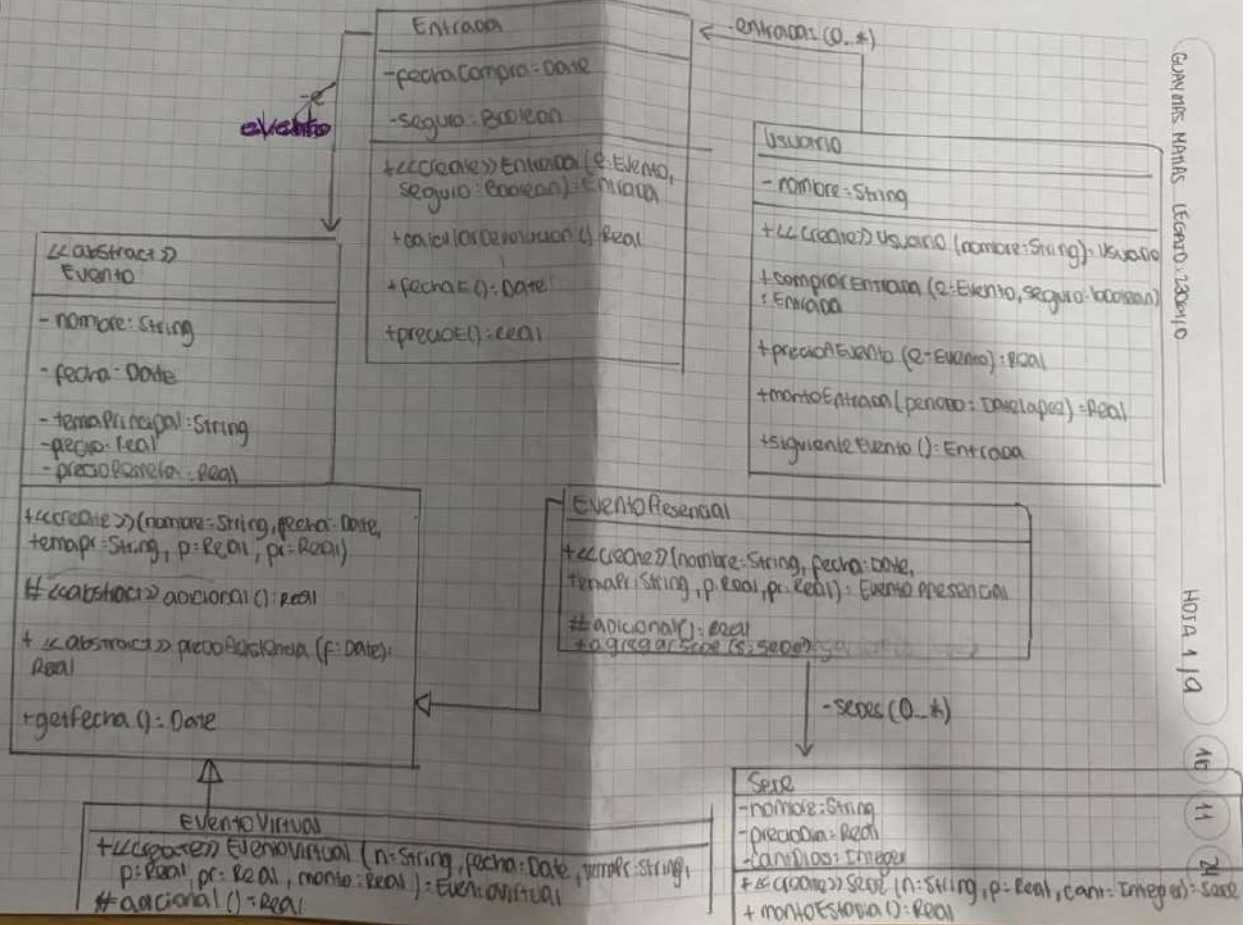 Entrada
-fechaCompra: Date
-seguro: Boolean
+<<create>> Entrada (e: Evento,
seguro: Boolean): Entrada
+calcularDevolucion(): Real
+fechaE(): Date
+precioE(): Real
-entradas (0..*)
evento
Usuario
-nombre: String
+<<create>> Usuario (nombre: String): Usuario
+comprarEntrada (e: Evento, seguro: boolean)
: Entrada
+precioAEvento (e: Evento): Real
+montoEntrada (periodo: DateLapse): Real
+siguienteEvento (): Entrada
<<abstract>>
Evento
-nombre: String
-fecha: Date
-temaPrincipal: String
-precio: Real
-precioRemera: Real
+<<create>> (nombre: String, fecha: Date,
temapr: String, p: Real, pr: Real)
#<<abstract>> adicional (): Real
+<<abstract>> precioAsistencia (f: Date):
Real
+getfecha (): Date
EventoPresencial
+<<create>> (nombre: String, fecha: Date,
temaPr: String, p: Real, pr: Real): Evento Presencial
#adicional(): Real
+agregarSede (s: Sede)
-sedes (0..*)
Sede
-nombre: String
-precioDia: Real
-cantDias: Integer
+<<create>> Sede (n: String, p: Real, cant: Integer): Sede
+montoEstadia (): Real
EventoVirtual
+<<create>> EventoVirtual (n: String, fecha: Date, temaPr: String,
p: Real, pr: Real, monto: Real): EventoVirtual
#adicional (): Real
GUAYMAS MATIAS LEGAJO:
HOJA 1/9